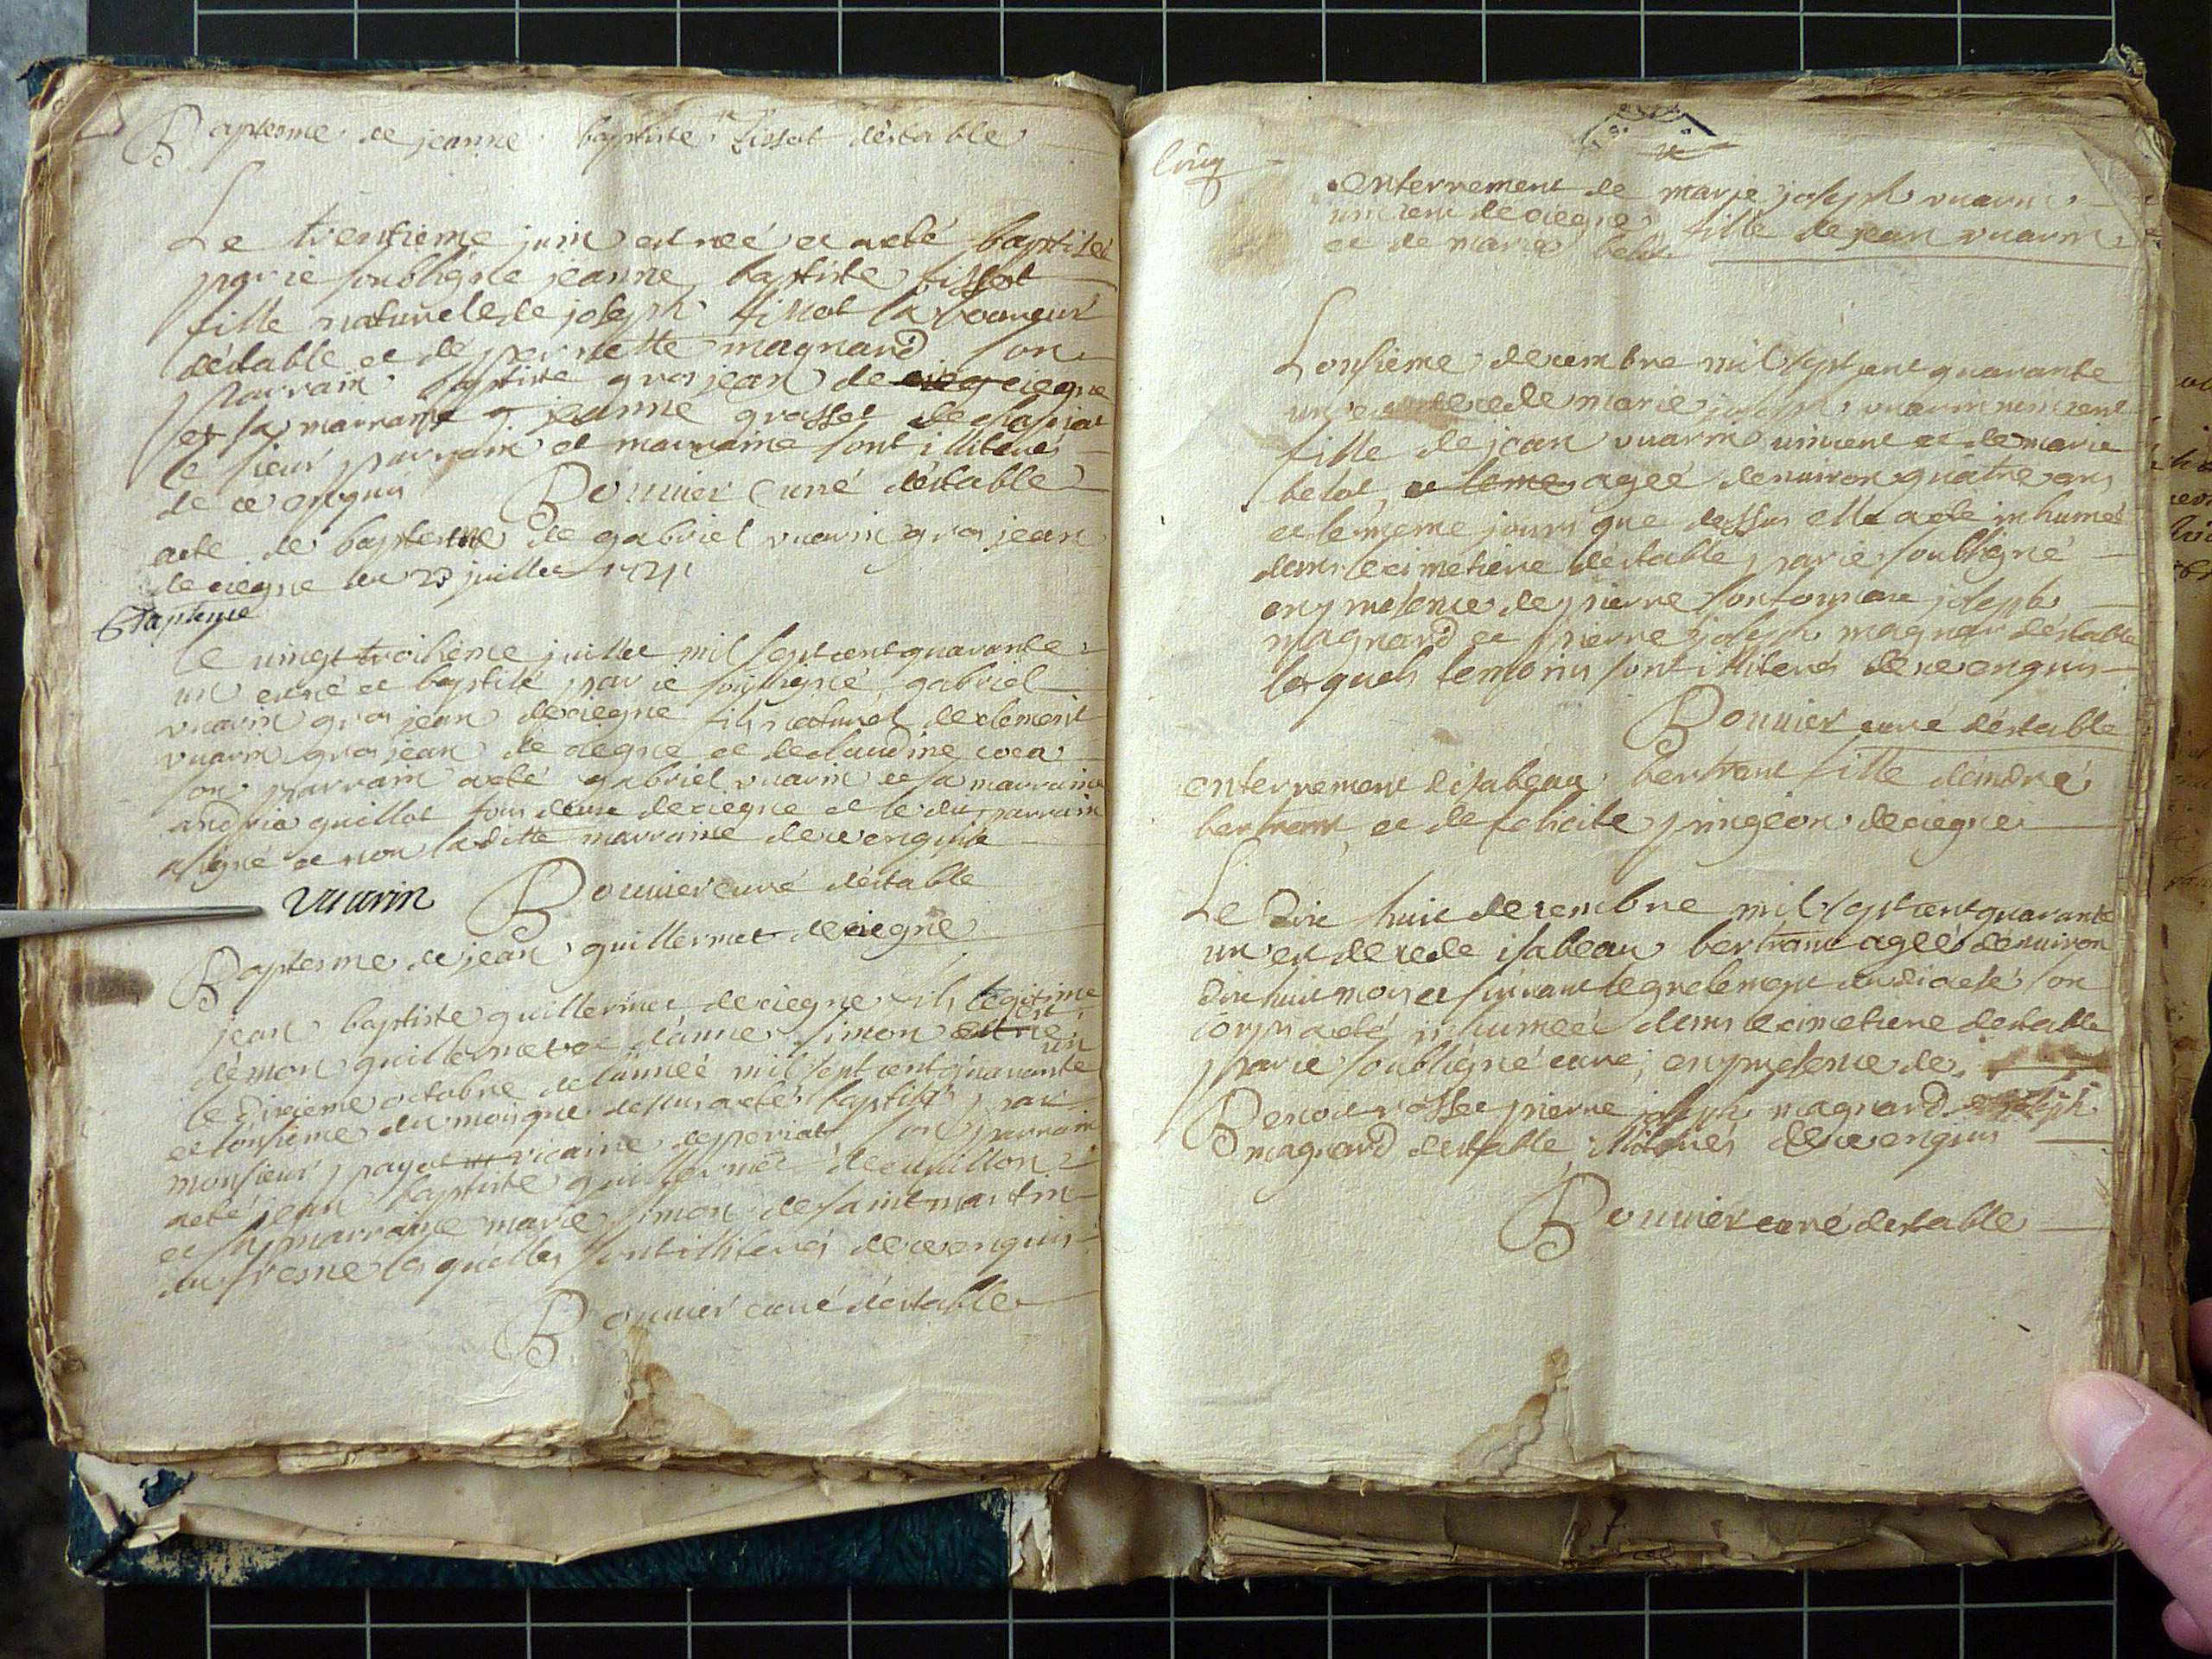 Baptesme de jeanne baptiste tissot déstable
Le trentieme juin est neé et a eté baptiseé
par ie soubsigne jeanne baptiste tissot
fille naturele de joseph tissot laboureur
déstable et de pernette magnard son
parrain baptiste gros jean de ciegne
et sa marraine jeanne grosset de
le sieur parrain et marraine sont illiterés
de ce enquis Bouuier Curé déstable
acte de baptesme de gabriel vuarin gros jean
de ciegne le 23 juillet 1741
Baptesme
le vingt troisieme juillet mil sept cent quarante
un est né et baptisé par ie soussigné gabriel
vuarin gros jean de ciegne fils naturel de clement
vuarin gros jean de ciegne et de claudine
son parrain a eté gabriel vuarin et sa marraine
guillot tous deux de ciegne et le dit parrain
a signé et non laditte marraine de ce enquise
vuarin Bouuier curé déstable
Baptesme de jean guillermet de ciegne
jean baptiste guillermet de ciegne fils legitime
guillermet et d'anne simon est né
le dixieme octobre de lanneé mil sept cent quarante un
et lonsieme du mois que dessus a eté baptisé par
monsieur payet vicaire son parrain
a eté jean baptiste guillermet
et sa marraine marie simon de saint martin
du fresne lesquelles sont illiterés de ce enquis
Bouuier curé déstable
cinq
enterrement de marie joseph vuarin
vincent de ciegne fille de jean vuarin
et de marie belot
Lonsieme decembre mil sept cent quarante
un est decedeé marie joseph vuarin vincent
fille de jean vuarin vincent et de marie
belot ageé denuiron quatre ans
et le meme jours que dessus elle a eté inhumeé
dans le cimetiere déstable par ie soubsigné
en presence de pierre joseph
magnard et pierre joseph magnar déstable
lesquels temoins sont illiterés de ce enquis
Bouuier curé déstable
enterrement disabeau bertrant fille d'andré
bertrant et de felicite pingeon de ciegne
Le Dix huit decembre mil sept cent quarante
un est decede isabeau bertrant ageé denuiron
dix huit mois et suiuant le son
corps a eté inhumeé dans le cimetiere déstable
par ie soubsigné curé, en presence de
Benoit rosset pierre joseph magnard joseph
magnard destable illiterés de ce enquis
Bouuier curé destable